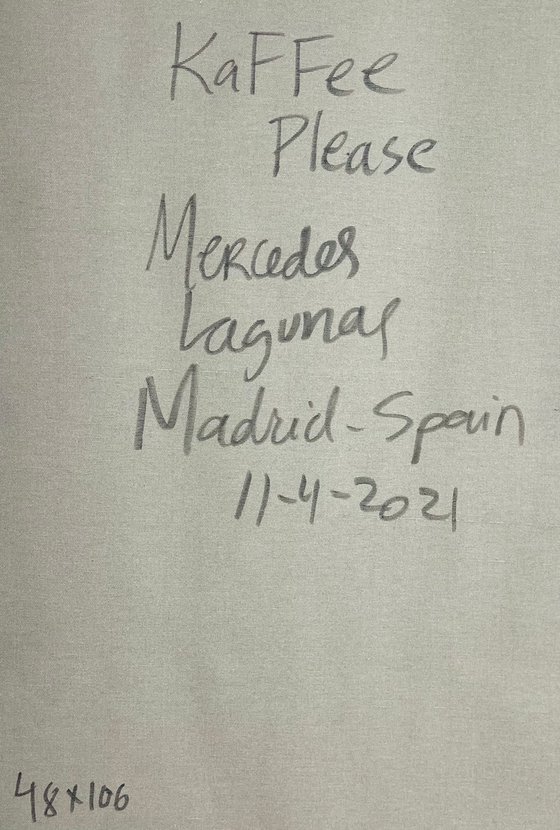 KaFFee
Please
Mercedes
Lagunas
Madrid-Spain
11-4-2021
48x106